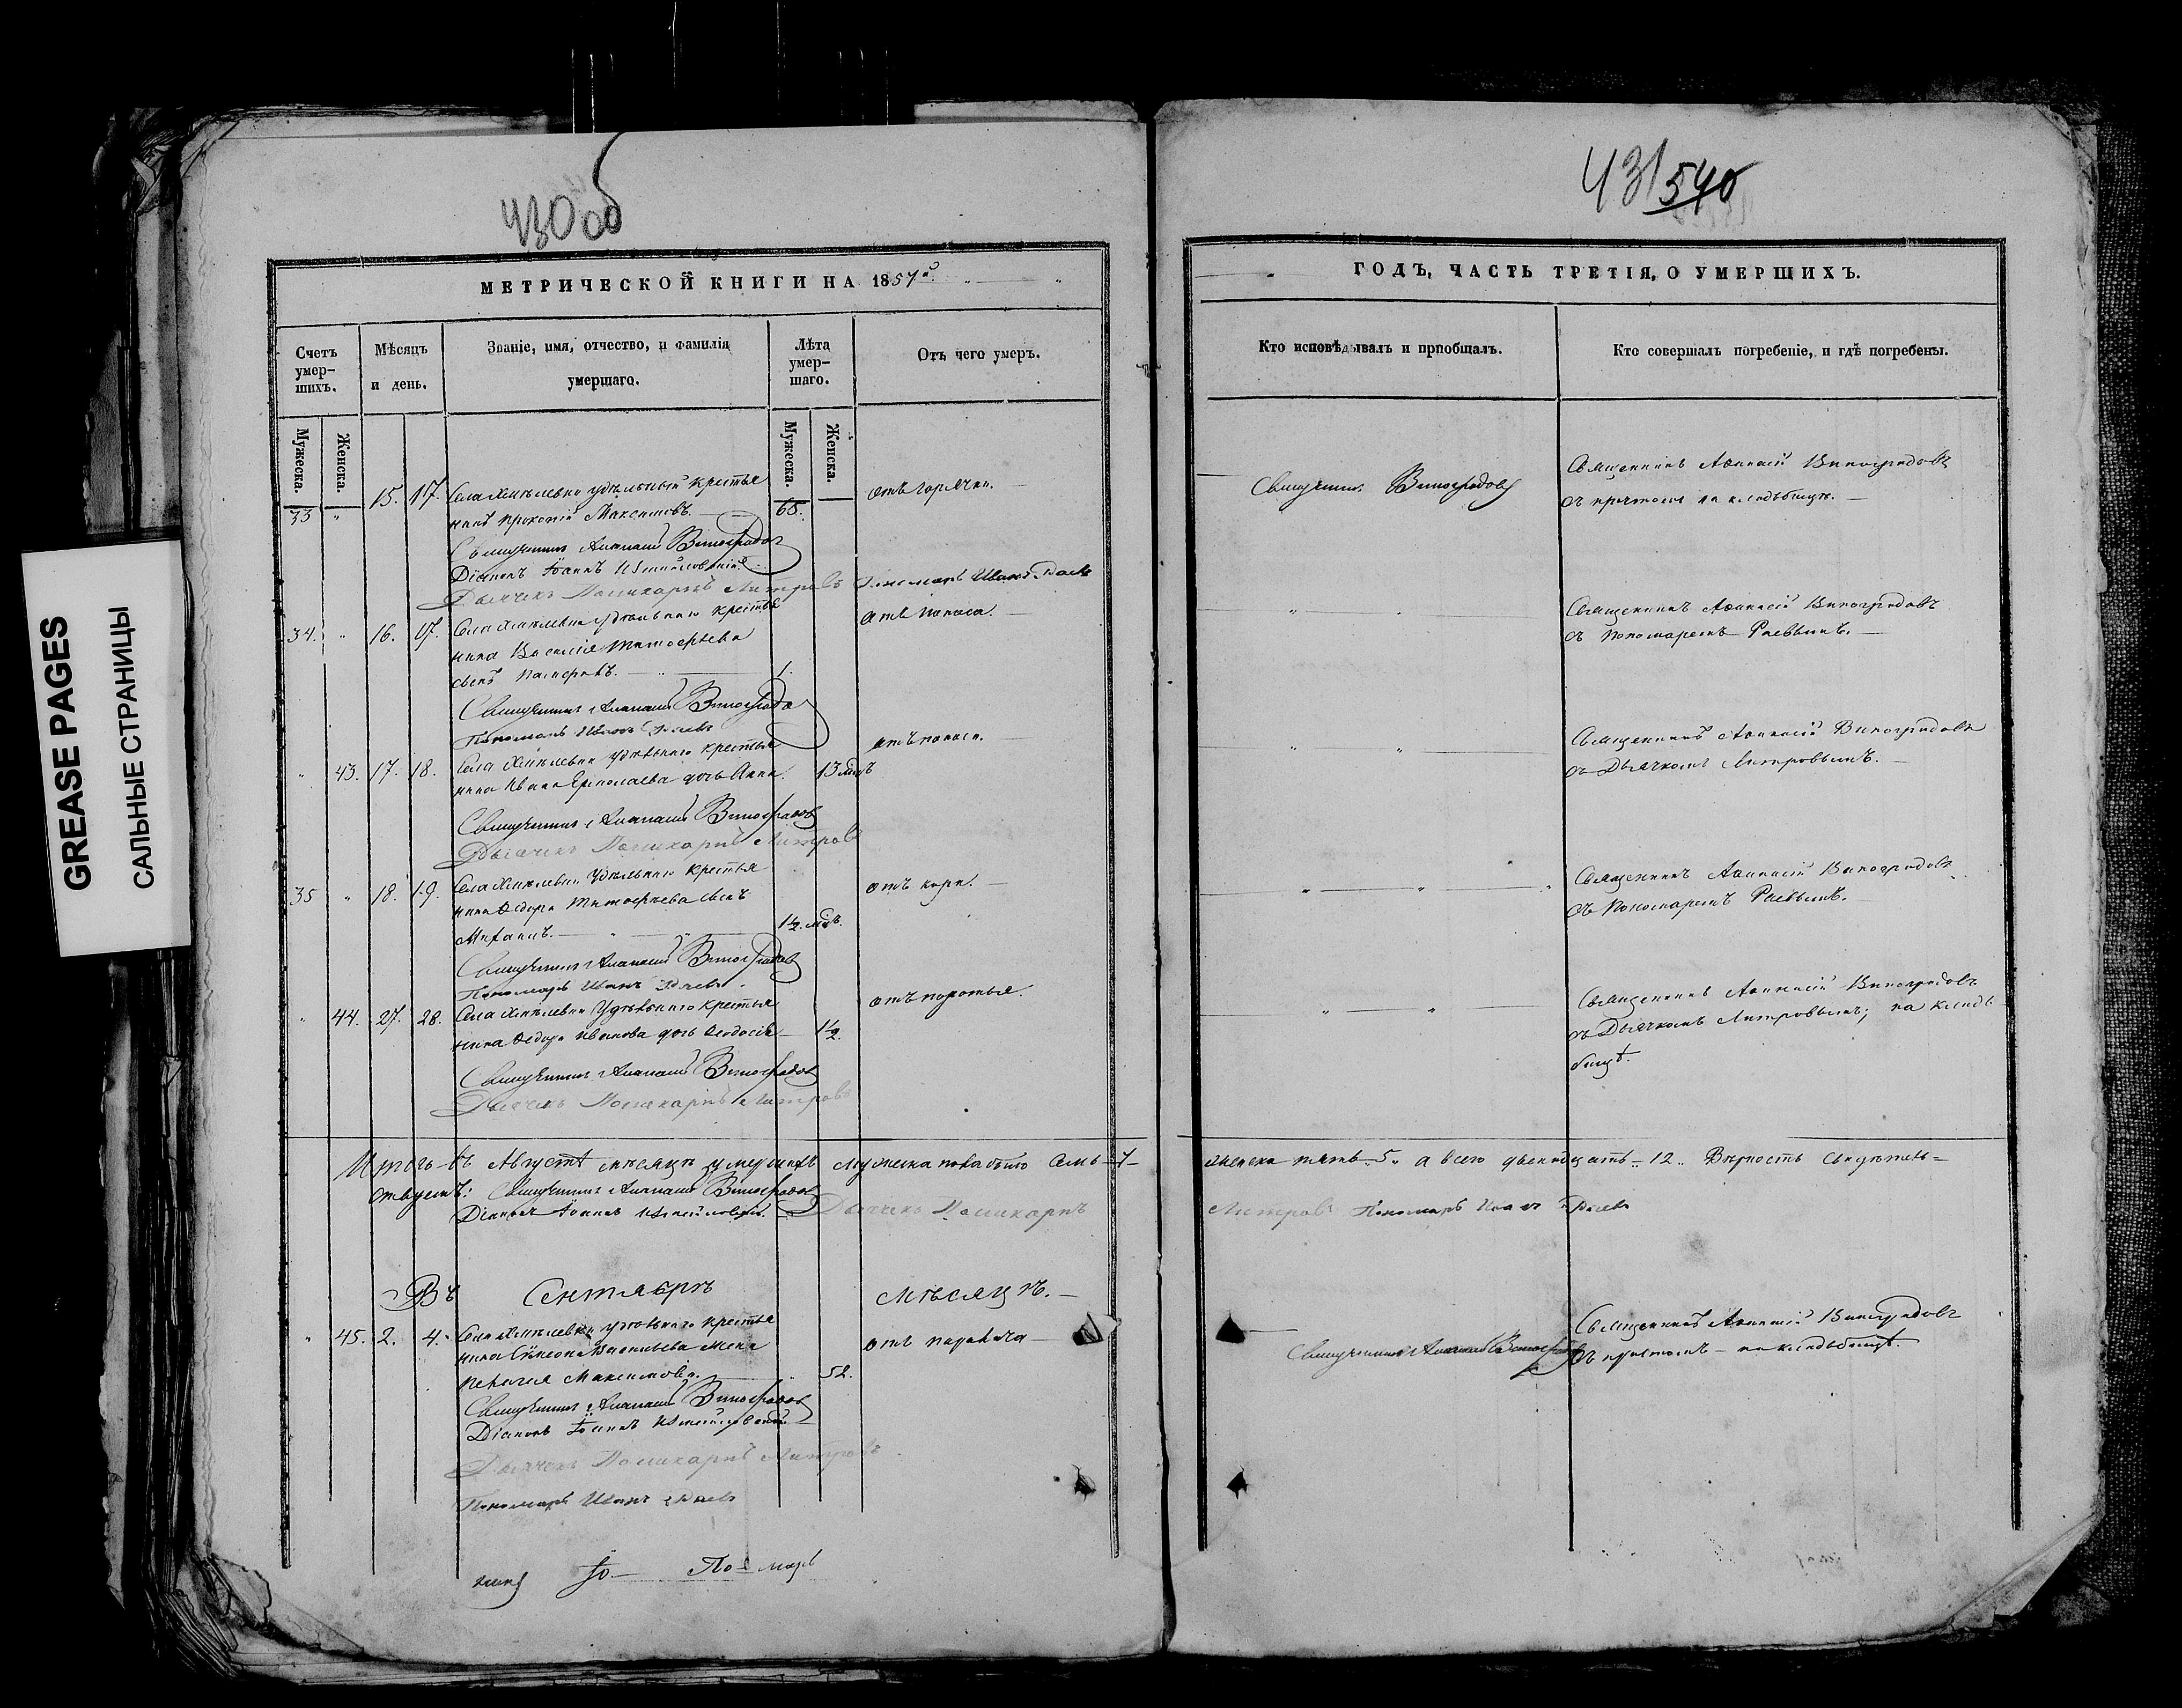 430 об
МЕТРИЧЕСКОЙ КНИГИ НА 1857й
Счетъ умер-шихъ.
Мѣсяцъ и день.
Званіе, имя, отчество, и фамилія умершаго.
Лѣта умер-шаго.
Отъ чего умеръ.
Мужеска. Женска. Мужеска. Женска.
33 " 15. 17. Села удѣльный крестья
нинъ Прокопій Максимовъ. 65. отъ горячки.
Священникъ Аѳанасій Виноградов
Діаконъ Іоаннъ Измайловскій
Дьячекъ Поликарпъ Литровъ Пономарь Иванъ Раевъ
34. " 16. 17. Села удѣльнаго крестья
нина Василія Тимофѣева
сынъ 1. отъ поноса.
Священникъ Аѳанасій Виноградов
Пономарь Иванъ Раевъ
" 43. 17. 18. Села удѣльнаго крестья
нина Ивана Ермолаева дочь Анна. 13 мѣд отъ поноса.
Священникъ Аѳанасій Виноградов
Дьячекъ Поликарпъ Литровъ
35 " 18. 19. Села удѣльнаго крестья
нина Ѳедора Тимофѣева сынъ
Михаилъ. 1½ мѣд. отъ кори.
Священникъ Аѳанасій Виноградов
Пономарь Иванъ Раевъ
" 44. 27. 28. Села удѣльнаго крестья
нина Ѳедора Иванова дочь Ѳеодосія 1½.
Священникъ Аѳанасій Виноградов
Дьячекъ Поликарпъ Литровъ
Итого въ Августѣ мѣсяцѣ умершихъ мужеска пола было семь 7
ствуемъ: Священникъ Аѳанасій Виноградов
Діаконъ Іоаннъ Измайловскій. Дьячекъ Поликарпъ
Въ Сентябрѣ мѣсяцѣ.
" 45. 2. 4. Села удѣльнаго крестья
нина Симеона Васильева жена
Пелагея Максимова. 52. отъ паралича
Священникъ Аѳанасій Виноградов
Діаконъ Іоаннъ Измайловскій
Дьячекъ Поликарпъ Литровъ
Пономарь Иванъ Раевъ
Іо— По— марь
431 540
ГОДЪ, ЧАСТЬ ТРЕТІЯ, О УМЕРШИХЪ.
Кто исповѣдывалъ и пріобщалъ.
Кто совершалъ погребеніе, и гдѣ погребены.
Священникъ Виноградовъ
Священникъ Аѳанасій Виноградовъ
съ причтомъ на кладбищѣ.
Священникъ Аѳанасій Виноградовъ
съ Пономаремъ Раевымъ.
Священникъ Аѳанасій Виноградовъ
съ Дьячкомъ Литровымъ.
Священникъ Аѳанасій Виноградовъ
съ Пономаремъ Раевымъ.
Священникъ Аѳанасій Виноградовъ
съ Дьячкомъ Литровымъ; на кладь
бищѣ.
женска пять 5 а всего двенадцать 12. Вѣрность свидѣтель=
Литровъ Пономарь Иванъ Раевъ
Священникъ Аѳанасій Виноградов
Священникъ Аѳанасій Виноградовъ
съ причтомъ на кладбищѣ.
GREASE PAGES
САЛЬНЫЕ СТРАНИЦЫ